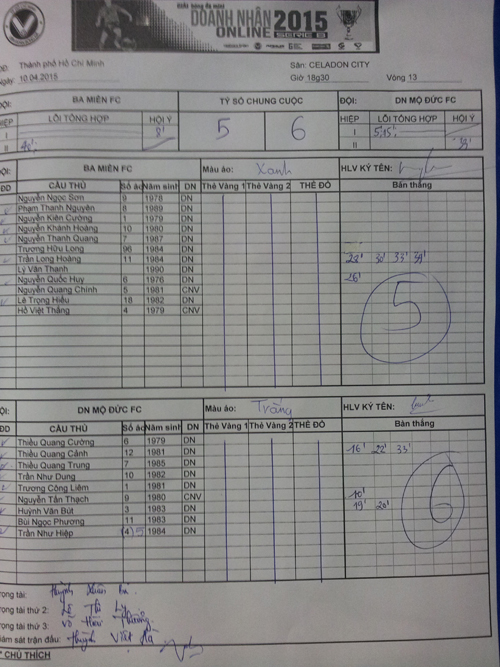 DOANH NHÂN 2015
ONLINE SERIE B
Thành phố Hồ Chí Minh Sân: CELADON CITY
Ngày 10.04.2015 Giờ 18g30 Vòng 13
ĐỘI: BA MIỀN FC TỶ SỐ CHUNG CUỘC ĐỘI: DN MỘ ĐỨC FC
HIỆP LỖI TỔNG HỢP HỘI Ý 5 6 HIỆP LỖI TỔNG HỢP HỘI Ý
I 8' I 5', 15',
II II
BA MIỀN FC Màu áo: Xanh HLV KÝ TÊN:
CẦU THỦ Số áo Năm sinh DN Thẻ Vàng 1 Thẻ Vàng 2 THẺ ĐỎ Bàn thắng
Nguyễn Ngọc Sơn 9 1978 DN
Phạm Thanh Nguyên 8 1989 DN
Nguyễn Kiên Cường 1 1979 DN
Nguyễn Khánh Hoàng 10 1980 DN
Nguyễn Thanh Quang 7 1987 DN
Trương Hữu Long 96 1984 DN
Trần Long Hoàng 11 1984 DN
Lý Văn Thanh 1990 DN
Nguyễn Quốc Huy 6 1976 DN 26'
Nguyễn Quang Chính 5 1981 CNV
Lê Trọng Hiếu 18 1982 DN
Hồ Việt Thắng 4 1979 CNV
5
DN MỘ ĐỨC FC Màu áo: Trắng HLV KÝ TÊN:
CẦU THỦ Số áo Năm sinh DN Thẻ Vàng 1 Thẻ Vàng 2 THẺ ĐỎ Bàn thắng
Thiều Quang Cường 6 1979 DN 16' 22' 35'
Thiều Quang Cảnh 12 1981 DN
Thiều Quang Trung 7 1985 DN
Trần Như Dụng 10 1982 DN
Trương Công Liêm 1 1981 DN
Nguyễn Tấn Thạch 9 1980 CNV 10'
Huỳnh Văn Bút 3 1983 DN 19' 20'
Bùi Ngọc Phương 11 1983 DN
Trần Như Hiệp 5 1984 DN
6
Trọng tài: Huỳnh
Trọng tài thứ 2: Lê Thi Ly
Trọng tài thứ 3: Võ
Giám sát trận đấu: Huỳnh Việt
* CHÚ THÍCH